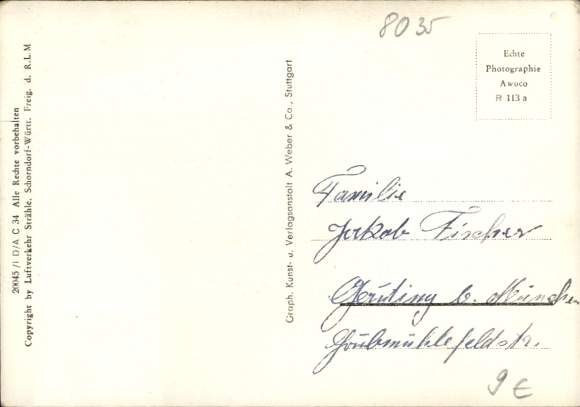 8035
Echte
Photographie
Awuco
R 113 a
20045 /I D/A C 34 Alle Rechte vorbehalten
Copyright by Luftverkehr Strähle, Schorndorf-Württ. Freig. d. R.L.M
Graph. Kunst- u. Verlagsanstalt A. Weber & Co., Stuttgart
Familie
Jakob Fischer
Gauting b. München
Grubmühlefeldstr.
9 €